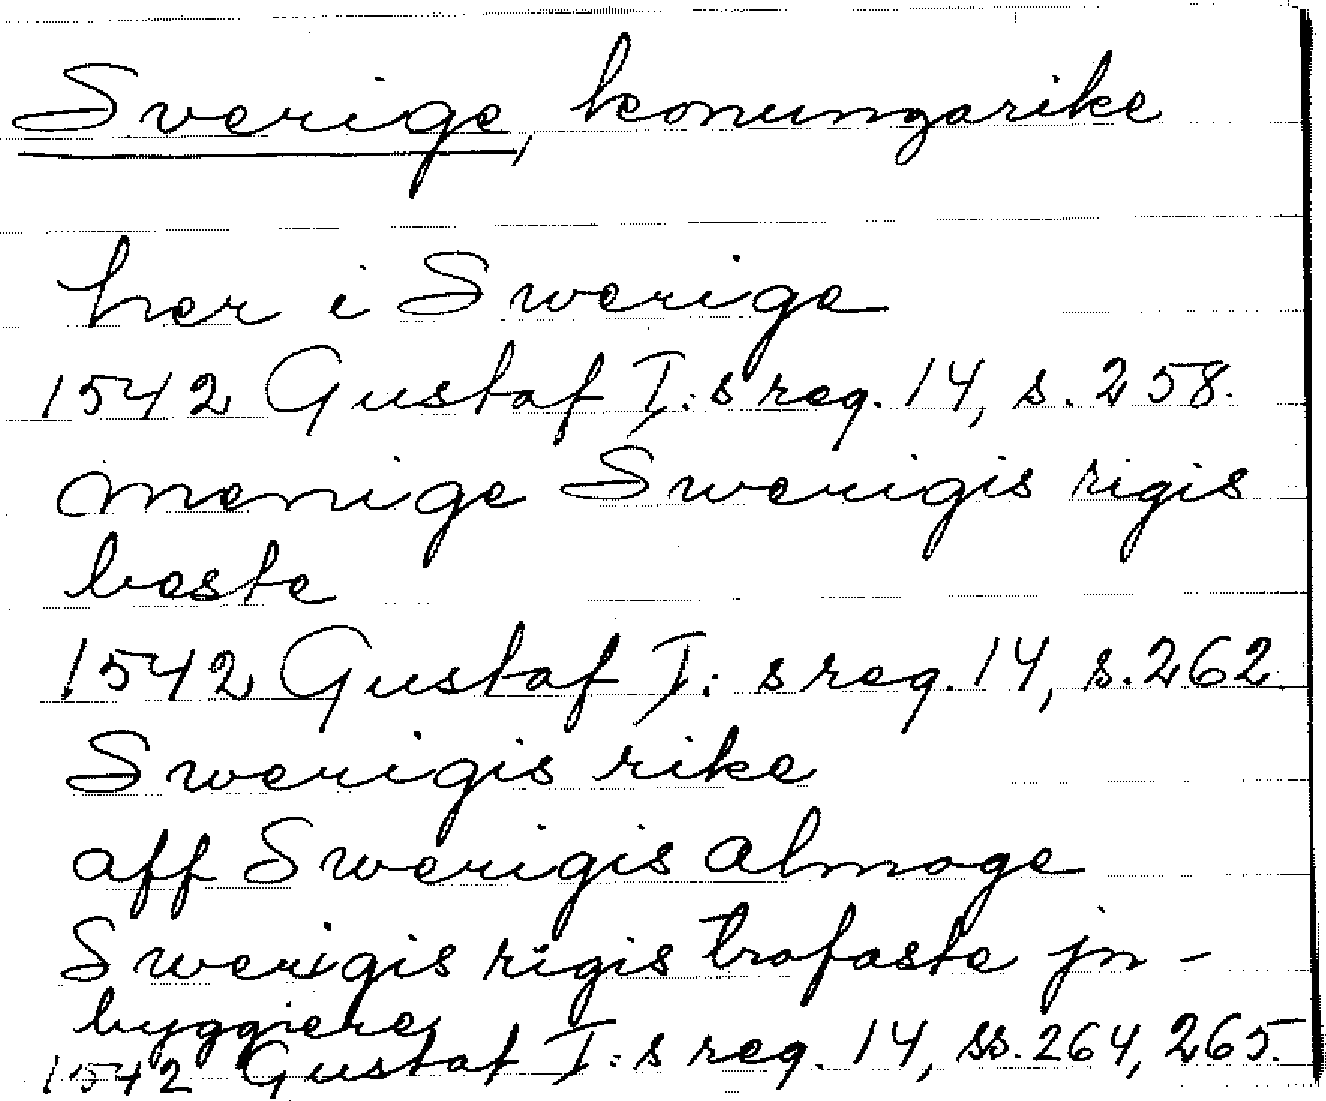 Sverige, konungarike
her i Swerige
1542 Gustaf I:s reg. 14, s. 258.
menige Swerigis rigis
beste
1542 Gustaf I:s reg. 14, s. 262.
Swerigis rike
aff Swerigis almoge
Swerigis rigis trofaste jn-
byggiere,
1542 Gustaf I:s reg. 14, ss. 264, 265.